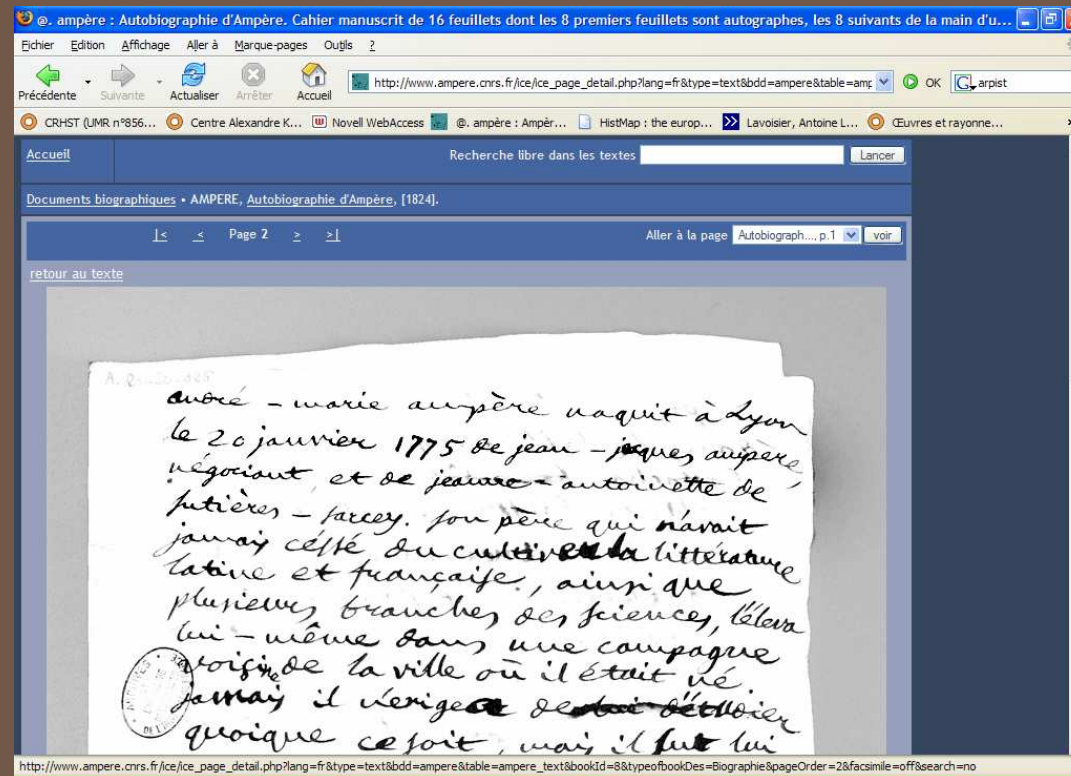 @. ampère : Autobiographie d'Ampère. Cahier manuscrit de 16 feuillets dont les 8 premiers feuillets sont autographes, les 8 suivants de la main d'u...
Fichier Edition Affichage Aller à Marque-pages Outils ?
Précédente Suivante Actualiser Arrêter Accueil http://www.ampere.cnrs.fr/ice/ice_page_detail.php?lang=fr&type=text&bdd=ampere&table=amp OK G arpist
CRHST (UMR n°856... Centre Alexandre K... Novell WebAccess @. ampère : Ampèr... HistMap : the europ... Lavoisier, Antoine L... Œuvres et rayonne...
Accueil Recherche libre dans les textes Lancer
Documents biographiques • AMPERE, Autobiographie d'Ampère, [1824].
|< < Page 2 > >| Aller à la page Autobiograph..., p.1 voir
retour au texte
andré - marie ampère naquit à Lyon
le 20 janvier 1775 de jean - jaques ampère,
négociant, et de jeanne - antoinette de
sutières - sarcey. son père qui n'avait
jamais céssé de cultiver la littérature
latine et française, ainsi que
plusieurs branches des sciences, l'éleva
lui - même dans une campagne
voisine de la ville où il était né.
jamais il n'exigea d'étudier
quoique ce soit, mais il sut lui
http://www.ampere.cnrs.fr/ice/ice_page_detail.php?lang=fr&type=text&bdd=ampere&table=ampere_text&bookId=8&typeofbookDes=Biographie&pageOrder=2&facsimile=off&search=no